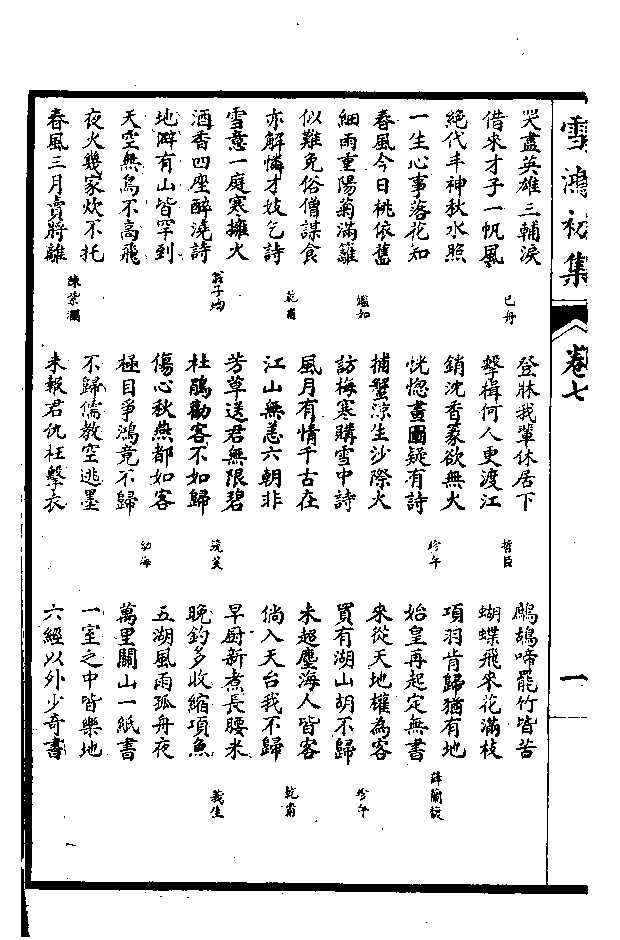 雪鴻初集
卷七
一
哭盡英雄三輔淚
借來才子一帆風
己舟
絕代丰神秋水照
一生心事落花知
春風今日桃依舊
細雨重陽菊滿籬
鑑如
似難免俗僧謀食
亦解憐才妓乞詩
乾甫
雪意一庭寒擁火
酒香四座醉澆詩
翁子均
地僻有山皆罕到
天空無鳥不高飛
夜火幾家炊不托
春風三月賣將離
陳紫瀾
登牀我輩休居下
擊楫何人更渡江
哲臣
銷沈香篆欲無火
恍惚畫圖疑有詩
珍午
捕蟹涼生沙際火
訪梅寒購雪中詩
風月有情千古在
江山無恙六朝非
芳草送君無限碧
杜鵑勸客不如歸
筱芙
傷心秋燕都如客
極目爭鴻竟不歸
幼海
不歸儒教空逃墨
未報君仇枉擊衣
鷓鴣啼罷竹皆苦
蝴蝶飛來花滿枝
項羽肯歸猶有地
始皇再起定無書
薛蘭谿
來從天地權為客
買有湖山胡不歸
珍午
未超塵海人皆客
倘入天台我不歸
乾甫
早厨新煮長腰米
晚釣多收縮項魚
義生
五湖風雨孤舟夜
萬里關山一紙書
一室之中皆樂地
六經以外少奇書